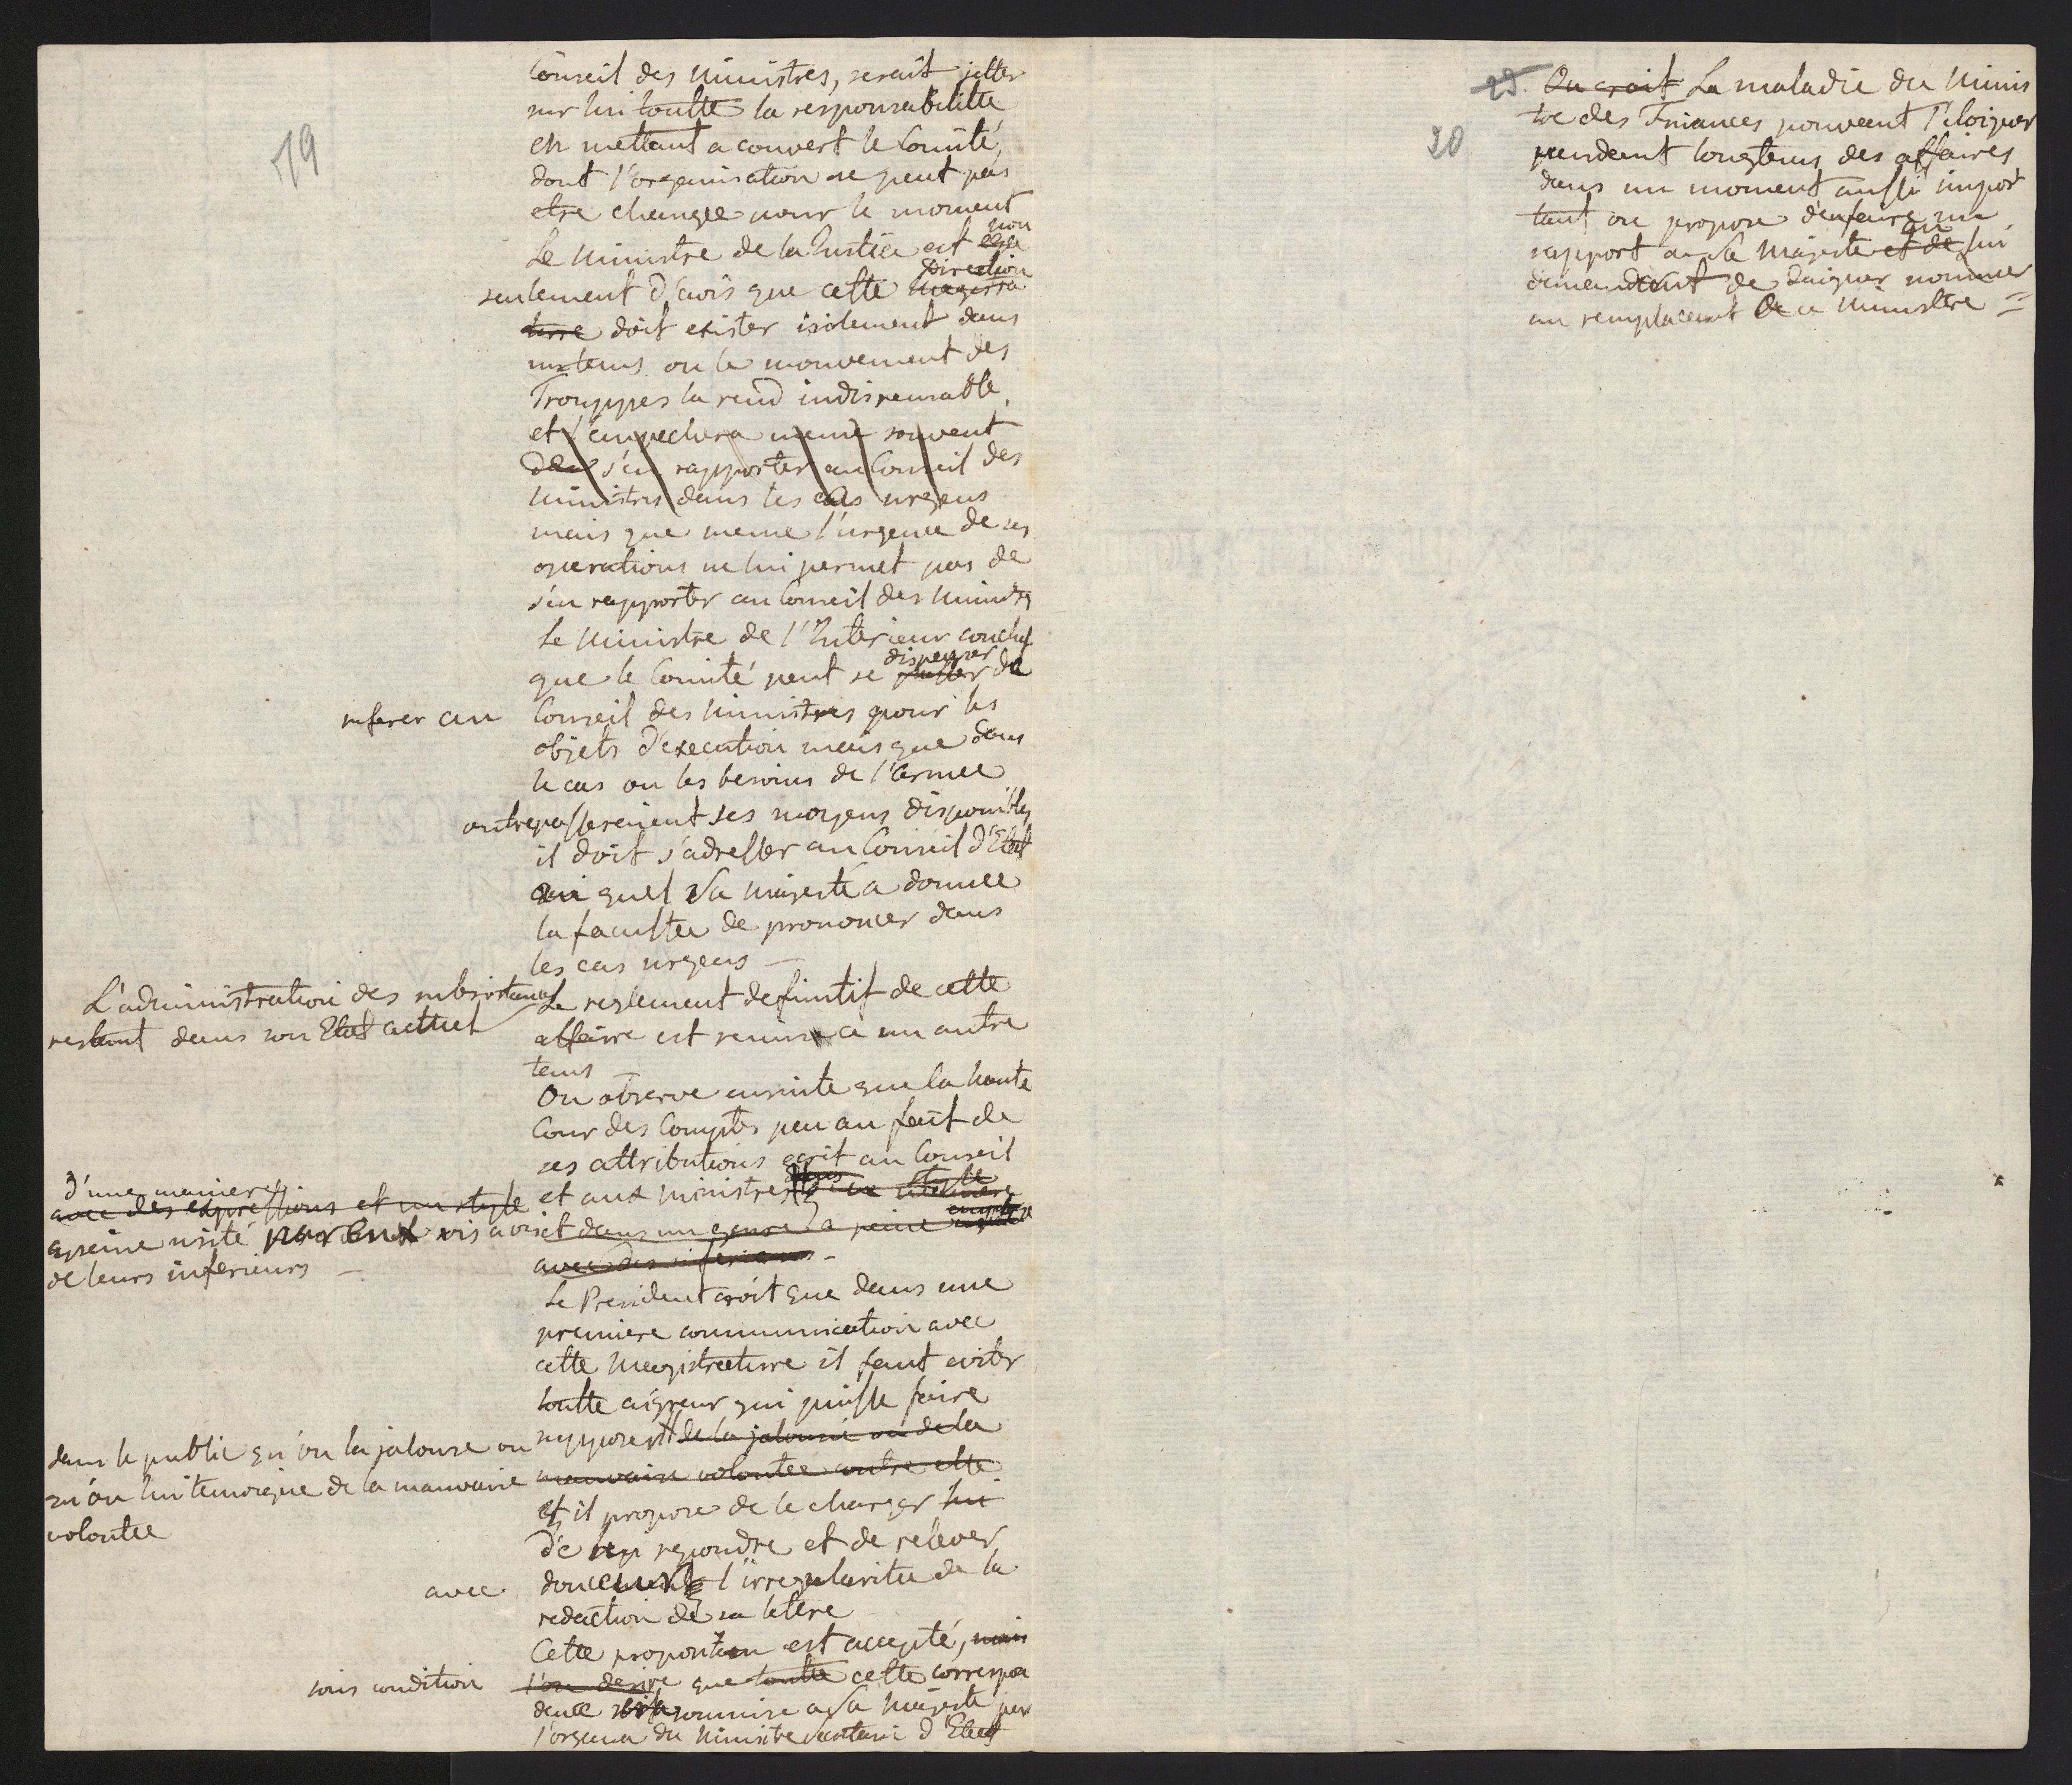 19
Conseil des Ministres, serait jetter
sur lui toutte la responsabilitée
en mettant a couvert le Comité,
dont l'organisation ne peut pas
etre changée pour le moment
Le Ministre de la Justice est non
seulement d'avis que cette Direction Magistra
ture doit exister isolement dans
un tems ou le mouvement des
Trouppes la rend indispensable,
et l'empechera meme souvent
de s'en rapporter au Conseil des
Ministres dans les cas urgens
mais que meme l'urgence de ses
operations ne lui permet pas de
s'en rapporter au Conseil des Ministres
Le Ministre de l'Interieur conclut
que le Comité peut se dispenser de
referer au Conseil des Ministres pour les
objets d'execution mais que dans
le cas ou les besoins de l'armee
outrepasseraient ses moyens disponibles
il doit s'adresser au Conseil d'Etat
au quel Sa Majesté a donnee
la facultée de prononcer dans
les cas urgens —
L'administration des subsistances
restant dans son Etat actuel
Le reglement definitif de cette
affaire est remis a un autre
tems —
On observe ensuite que la haute
Cour des Comptes peu au fait de
ses attributions ecrit au Conseil
et aux Ministres dans un style
d'une maniere
avec des expressions et un style
apeine usité par eux vis avis
de leurs inferieurs —
et dans un genre a peine employé
avec des inferieurs —
Le President croit que dans une
premiere communication avec
cette Magistrature il faut eviter
toutte aigreur qui puisse faire
supposer de la jalousie ou de la
mauvaise volontée contre elle
dans le public qu'on la jalouse ou
qu'on lui temoigne de la mauvaise
volontée
et il propose de le charger lui
de repondre et de relever
avec doucement l'irregularitée de la
redaction de sa lettre
Cette proposition est accepté, mais
sous condition l'on desire que toutte cette correspon
dence soit soumise a Sa Majesté par
l'organe du Ministre Secretaire d'Etat
20
29. On croit La maladie du Minis
tre des Finances pouvant l'eloigner
pendant longtems des affaires
dans un moment aussi impor
tant on propose d'en faire un
rapport a Sa Majesté et de lui
demandant de daigner nommer
un remplacant de ce Ministre =